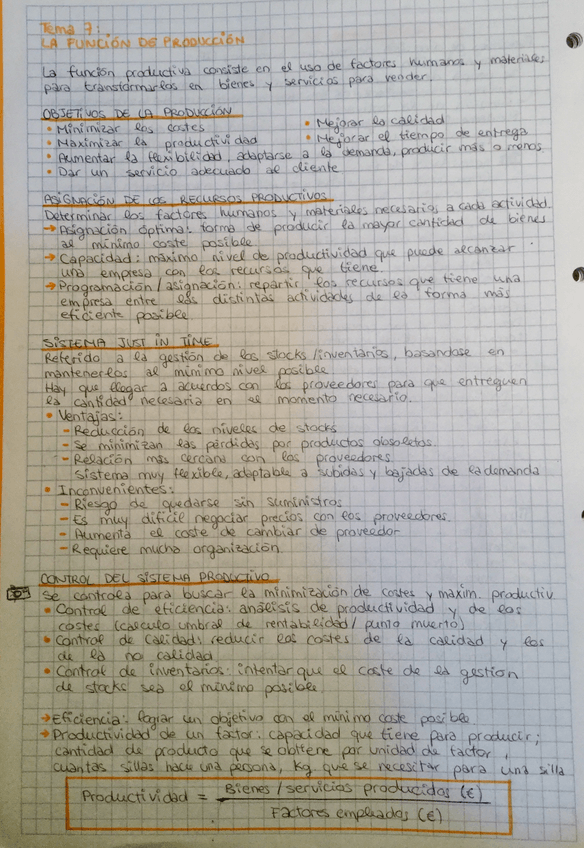 Tema 7:
LA FUNCIÓN DE PRODUCCIÓN
La función productiva consiste en el uso de factores humanos y materiales
para transformarlos en bienes y servicios para vender.
OBJETIVOS DE LA PRODUCCIÓN
• Minimizar los costes
• Mejorar la calidad
• Maximizar la productividad
• Mejorar el tiempo de entrega
• Aumentar la flexibilidad, adaptarse a la demanda, producir más o menos
• Dar un servicio adecuado al cliente
ASIGNACIÓN DE LOS RECURSOS PRODUCTIVOS
Determinar los factores humanos y materiales necesarios a cada actividad.
→ Asignación óptima: forma de producir la mayor cantidad de bienes
al mínimo coste posible
→ Capacidad: máximo nivel de productividad que puede alcanzar
una empresa con los recursos que tiene.
→ Programación / asignación: repartir los recursos que tiene una
empresa entre las distintas actividades de la forma más
eficiente posible
SISTEMA JUST IN TIME
Referido a la gestión de los stocks / inventarios, basandose en
mantenerlos al mínimo nivel posible
Hay que llegar a acuerdos con los proveedores para que entreguen
la cantidad necesaria en el momento necesario.
• Ventajas:
- Reducción de los niveles de stocks
- Se minimizan las pérdidas por productos obsoletos.
- Relación más cercana con los proveedores
Sistema muy flexible, adaptable a subidas y bajadas de la demanda
• Inconvenientes:
- Riesgo de quedarse sin suministros
- Es muy difícil negociar precios con los proveedores.
- Aumenta el coste de cambiar de proveedor
- Requiere mucha organización.
CONTROL DEL SISTEMA PRODUCTIVO
Se controla para buscar la minimización de costes y maxim. productiv.
• Control de eficiencia: análisis de productividad y de los
costes (calculo umbral de rentabilidad / punto muerto)
• Control de calidad: reducir los costes de la calidad y los
de la no calidad
• Control de inventarios: intentar que el coste de la gestión
de stocks sea el mínimo posible
→ Eficiencia: lograr un objetivo con el mínimo coste posible
→ Productividad de un factor: capacidad que tiene para producir;
cantidad de producto que se obtiene por unidad de factor,
cuantas sillas hace una persona, Kg que se necesitar para una silla
Productividad = Bienes / servicios producidos (€)
Factores empleados (€)